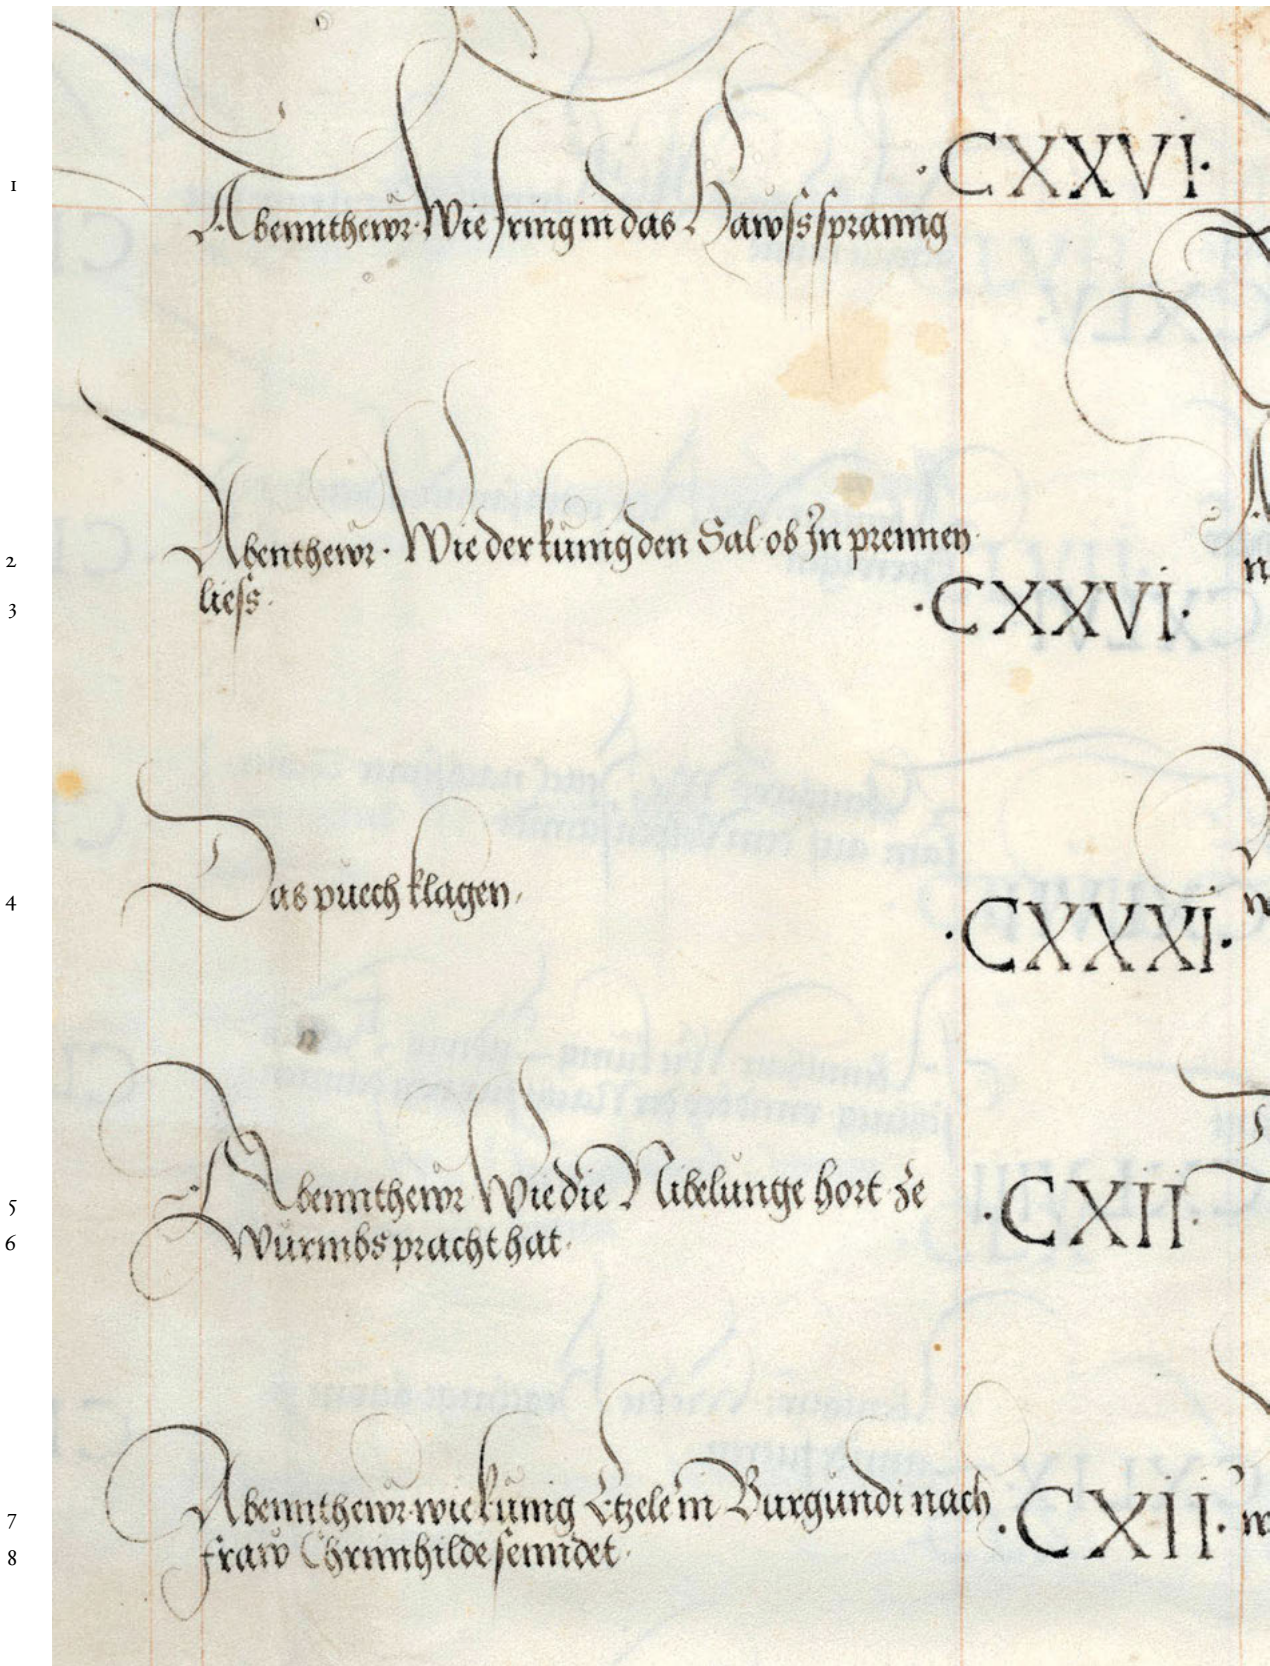 ·CXXVI·
1 Abennthewr· Wie Iring in das Hawſsſpranng
2 Abenthewr· Wie der kunig den Sal ob Jn prennen
3 lieſs·
·CXXVI·
4 Das puech klagen,
·CXXXI·
5 Abennthewr Wie die Nibelunge hort ze
·CXII·
6 Wurmbs pracht hat·
7 Abennthewr wie kunig Etzele in Burgundi nach
·CXII·
8 fraw Chrimhilde ſenndet·